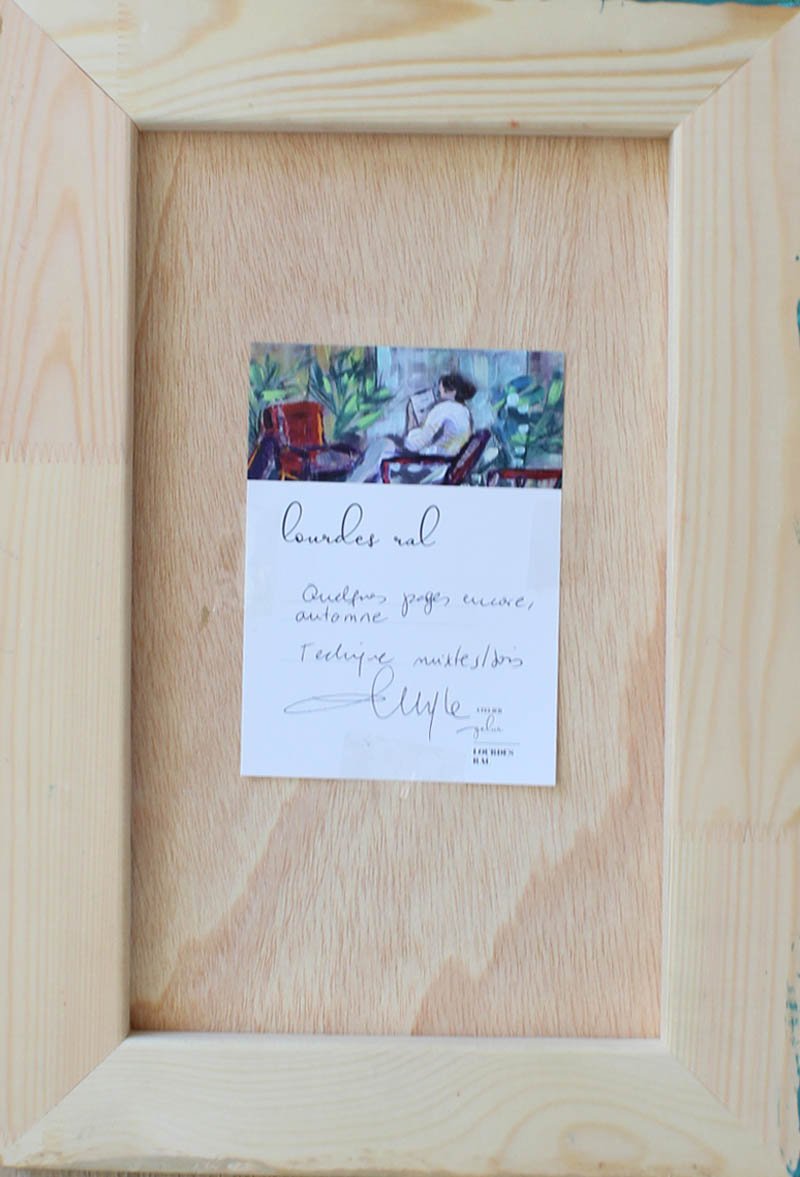 lourdes ral
Quelques pages encore,
automne
Technique mixtes/bois
ATELIER
LOURDES
RAL